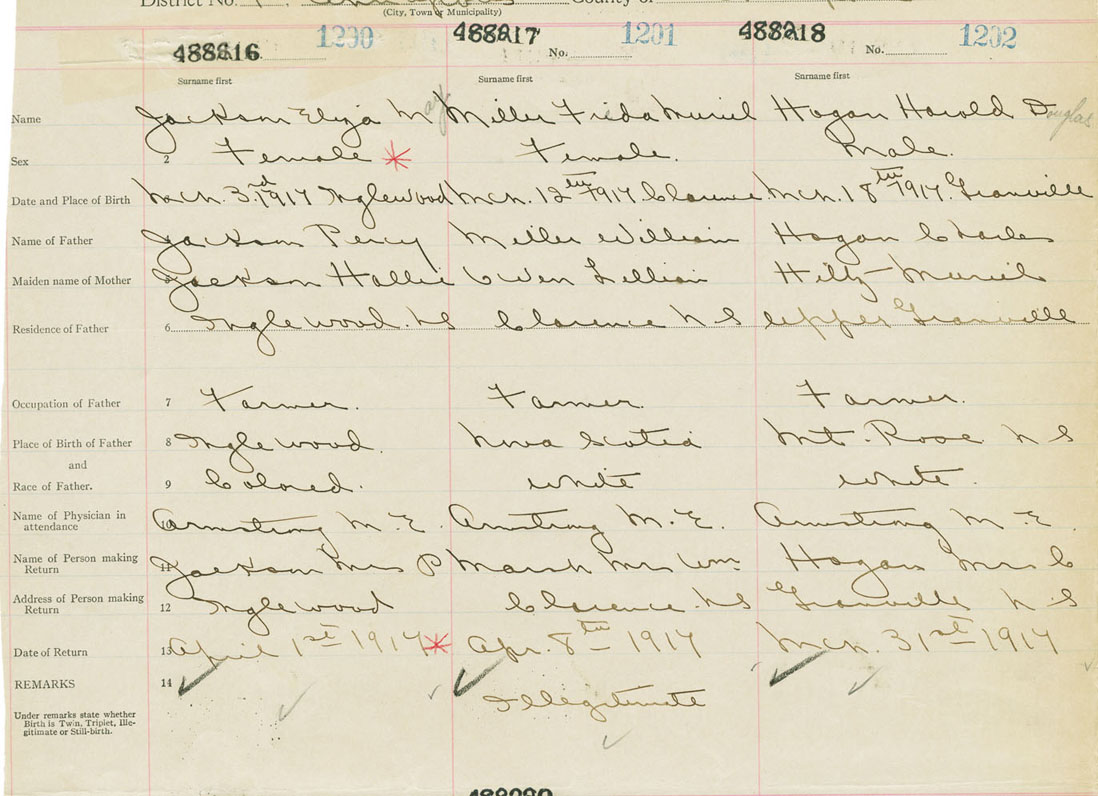 District No.
County of
(City, Town or Municipality)
488216 1200 488217 No. 1201 488218 No. 1202
Surname first Surname first Surname first
Name Jackson Eliza May Miller Frida Muriel Hogan Harold Douglas
Sex 2 Female * Female. Male.
Date and Place of Birth Mch. 3rd 1917 Inglewood Mch. 12th 1917 Clarence Mch. 18th 1917. Granville
Name of Father Jackson Percy Miller William Hogan Charles
Maiden name of Mother 5 Jackson Hallie Owen Lillian Hiltz Muriel
Residence of Father 6 Inglewood. NS Clarence N S Upper Granville
Occupation of Father 7 Farmer. Farmer. Farmer.
Place of Birth of Father 8 Inglewood. Nova Scotia Mt. Rose N S
and
Race of Father. 9 Colored. White White.
Name of Physician in
attendance 10 Armstrong M. E. Armstrong M. E. Armstrong M E.
Name of Person making
Return 11 Jackson Mrs P Marsh Mrs Wm. Hogan Mrs C
Address of Person making
Return 12 Inglewood Clarence. NS Granville N S
Date of Return 13 April 1st 1917 * Apr. 8th 1917 Mch. 31st 1917
REMARKS 14
Illegitimate
Under remarks state whether
Birth is Twin, Triplet, Ille-
gitimate or Still-birth.